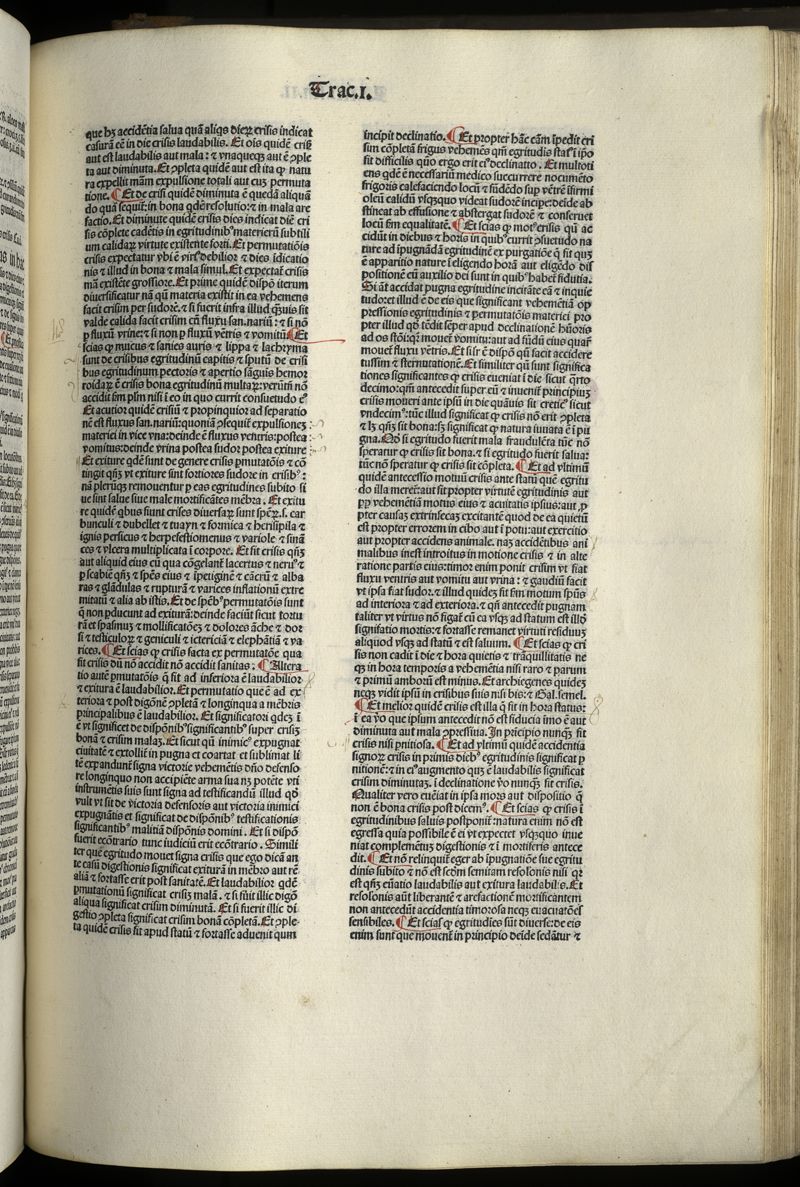 Trac.I.
que hȝ accidētia salua quā aliqs dieꝝ crisis indicat
casurā eē in die crisis laudabilis. Et oīs quidē crisis
aut est laudabilis aut mala: ⁊ vnaqueqȝ aut ē ꝯple
ta aut diminuta. Et ꝯpleta quidē aut est ita ꝙ natu
ra expellit mām expulsione totali aut cuȝ permuta
tione. ¶ Et de crisi quidē diminuta ē quedā aliquā
do quā sequit᷑: in bona qdē resolutio: ⁊ in mala are
factio. Et diminute quidē crisis dies indicat diē cri
sis cōplete cadētis in egritudinibꝰ materierū subtili
um calidaꝝ virtute existente forti. Et permutatiōis
crisis expectatur vbi ē virtꝰ debilior ⁊ dies īdicatio
nis ⁊ illud in bona ⁊ mala simul. Et expectat᷑ crisis
mā existēte grossiore. Et prime quidē dispō iterum
diuersificatur nā qñ materia existit in ea vehemens
facit crisim per sudorē. ⁊ si fuerit infra illud ꝙ̄uis sit
valde calida facit crisim cū fluxu san. nariū: ⁊ si nō
ꝑ fluxū vrine: ⁊ si non ꝑ fluxū vētris ⁊ vomitū ¶ Et
scias ꝙ mucus ⁊ sanies auris ⁊ lippa ⁊ lachryma
sunt de crisibus egritudinū capitis ⁊ sputū de crisi
bus egritudinum pectoris ⁊ apertio sāguis hemor
roidaꝝ ē crisis bona egritudinū multaꝝ: verūtn̄ nō
accidit sm̄ plm̄ nisi ī eo in quo currit consuetudo eꝰ
Et acutior quidē crisiū ⁊ propinquior ad separatio
nē est fluxus san. nariū: quoniā ꝯsequit᷑ expulsionez
materiei in vice vna: deinde ē fluxus ventris: postea
vomitus: deinde vrina postea sudor postea exiture
Et exiture qdē sunt de genere crisis pmutatōis ⁊ cō
tingit qñȝ vt exiture sint fortiores sudore in crisibꝰ:
nā plerūqȝ remouentur ꝑ eas egritudines subito si
ue sint salue siue male mortificātes mēbra. Et exitu
re quidē qbus fiunt crises diuersaꝝ sunt spēꝝ. s. car
bunculi ⁊ dubellet ⁊ tuayn ⁊ formica ⁊ herisipila ⁊
ignis persicus ⁊ herpesestiomenus ⁊ variole ⁊ sinā
ces ⁊ vlcera multiplicata ī corpore. Et fit crisis qñȝ
aut aliquid eius cū qua cōgelant᷑ lacertus ⁊ neruꝰ ⁊
ꝑ scabiē qñȝ ⁊ spēs eius ⁊ īpetiginē ⁊ cācrū ⁊ alba
ras ⁊ glādulas ⁊ rupturā ⁊ varices inflationū extre
mitatū ⁊ alia ab istis. Et de spēbꝰ permutatōis sunt
q̄ non ꝑducunt ad exiturā: deinde faciūt sicut tortu
rā et spasmuȝ ⁊ mollificatōeȝ ⁊ dolores āche ⁊ dor
si ⁊ testiculoꝝ ⁊ geniculi ⁊ ictericiā ⁊ elephātiā ⁊ va
rices. ¶ Et scias ꝙ crisis facta ex permutatōe qua
fit crisis dū nō accidit nō accidit sanitas: ¶ Altera
tio autē pmutatōis q̄ fit ad inferiora ē laudabilior
⁊ exitura ē laudabilior. Et permutatio que ē ad ex
teriora ⁊ post digōnē ꝯpletā ⁊ longinqua a mēbris
principalibus ē laudabilior. Et significatori qdeȝ ī
ē vt significet de dispōnibꝰ significantibꝰ super crisiȝ
bonā ⁊ crisim malaȝ. Et sicut qñ inimicꝰ expugnat
ciuitatē ⁊ extollit᷑ in pugna et coartat et sublimat li
tē expandunt᷑ signa victorie vehemētis dn̄o defenso
re longinquo non accipiēte arma sua nȝ potēte vti
instrumētis suis sunt signa ad testificandū illud qd̄
vult vt sit de victoria defensoris aut victoria inimici
expugnātis et significat de dispōnibꝰ testificationis
significantibꝰ malitiā dispōnis domini. Et si dispō
fuerit ecōtrario tunc iudiciū erit ecōtrario. Simili
ter quē egritudo mouet signa crisis que ego dicā an
te casū digestionis significat exiturā in mēbro aut rē
aliā ⁊ fortasse erit post sanitatē. Et laudabilior qdē
pmutationū significat crisiȝ malā. ⁊ si fuit illic digō
aliqua significat crisim diminutā. Et si fuerit illic di
gestio ꝯpleta significat crisim bonā cōpletā. Et ꝯple
ta quidē crisis fit apud statū ⁊ fortasse aduenit qum
incipit declinatio. ¶ Et propter hāc cām īpedit cri
sim cōpletā frigus vehemēs qm̄ egritudis statꝰ ī ipo
sit difficilis quō ergo erit eiꝰ declinatio. Et multoti
ens qdē ē necessariū medico succurrere nocumēto
frigoris calefaciendo locū ⁊ fūdēdo sup vētrē īfirmi
oleū calidū vsqȝquo videat sudorē incipe: deīde ab
stineat ab effusione ⁊ abstergat sudorē ⁊ conseruet
locū sm̄ equalitatē. ¶ Et scias ꝙ motꝰ crisis qū ac
cidūt in diebus ⁊ horis in quibꝰ currit ꝯsuetudo na
ture ad īpugnādā egritudinē ex purgatiōe q̄ sit quȝ
ē apparitio nature ī eligendo horā aut eligēdo dis
positionē cū auxilio dei sunt in quibꝰ habet᷑ fidutia.
Si āt accidat pugna egritudine incitāte eā ⁊ inquie
tudo: et illud ē de eis que significant vehemētiā op
pressionis egritudinis ⁊ permutatōis materiei pro
pter illud qd̄ tēdit sēper apud declinationē hūoris
ad os stōi: qꝛ mouet vomitū: aut ad fūdū eius quar
mouet fluxū vētris. Et sil̄r ē dispō qñ facit accidere
tussim ⁊ sternutationē. Et similiter qñ sunt significa
tiones significantes ꝙ crisis eueniat ī die sicut q̄rto
decimo: qm̄ antecedit super eū ⁊ inuenit᷑ principiuȝ
crisis moueri ante ipsū in die quāuis sit cretic̄ sicut
vndecimꝰ: tūc illud significat ꝙ crisis nō erit ꝯpleta
⁊ lȝ qñȝ sit bona: sȝ significat ꝙ natura iuuata ē ī pu
gna. Nā si egritudo fuerit mala fraudulēta tūc nō
speratur ꝙ crisis sit bona. ⁊ si egritudo fuerit salua:
tūc nō speratur ꝙ crisis sit cōpleta. ¶ Et ad vltimū
quidē antecessio motuū crisis ante statū quē egritu
do illa meret᷑: aut sit propter virtutē egritudinis aut
ꝓp vehemētiā motus eius ⁊ acuitatis ipsius: aut ꝓ
pter causaȝ extrinsecaȝ excitantē quod de ea quietū
est propter errorem in cibo aut ī potu: aut exercitio
aut propter accidens animale. naȝ accidētibus ani
malibus inest introitus in motione crisis ⁊ in alte
ratione partis eius: timor enim ponit crisim vt fiat
fluxu ventris aut vomitu aut vrina: ⁊ gaudiū facit
vt ipsa fiat sudor. ⁊ illud quideȝ fit sm̄ motum spūs
ad interiora ⁊ ad exteriora. ⁊ qñ antecedit pugnam
taliter vt virtus nō sigat᷑ cū ea vsqȝ ad statum est illud
signifatio mortis: ⁊ fortasse remanet virtuti residuuȝ
aliquod vsqȝ ad statū ⁊ est saluum. ¶ Et scias ꝙ cri
sis non cadit ī die ⁊ hora quietis ⁊ trāquillitatis ne
qȝ in hora temporis a vehemētia nisi raro ⁊ parum
⁊ primū amborū est minus. Et archiegenes quideȝ
neqȝ vidit ipsū in crisibus suis nisi bis: ⁊ Gal. semel.
¶ Et melior quidē crisis est illa q̄ fit in hora status:
ī ea v̄o que ipsum antecedit nō est fiducia imo ē aut
diminuta aut mala ꝯpressiua. In pricipio nunqȝ fit
crisis nisi pnitiosa. ¶ Et ad vltimū quidē accidentia
signoꝝ crisis in primis diebꝰ egritudinis significat ꝑ
nitionē: ⁊ in eiꝰ augmento quȝ ē laudabilis significat
crisim diminutaȝ. ī declinatione v̄o nunqȝ fit crisis.
Qualiter vero eueīat in ipsa mors aut dispositio q̄
non ē bona crisis post dicemꝰ. ¶ Et scias ꝙ crisis ī
egritudinibus saluis postponit᷑: natura enim nō est
egressa quia possibile ē ei vt expectet vsqȝquo inue
niat complementuȝ digestionis ⁊ ī mortiferis antece
dit. ¶ Et nō relinquit᷑ eger ab īpugnatiōe sue egritu
dinis subito ⁊ nō est scd̄m semitam resolonis nisi qꝛ
est qñȝ euātio laudabilis aut exitura laudabile. Et
resolonis aūt liberantē ⁊ arefactionē mortificantem
non antecedūt accidentia timorosa neqȝ euacuatōes
sensibiles. ¶ Et scias ꝙ egritudīes sūt diuerse: de eis
enim sunt que mouent᷑ in principio deīde sedātur ⁊